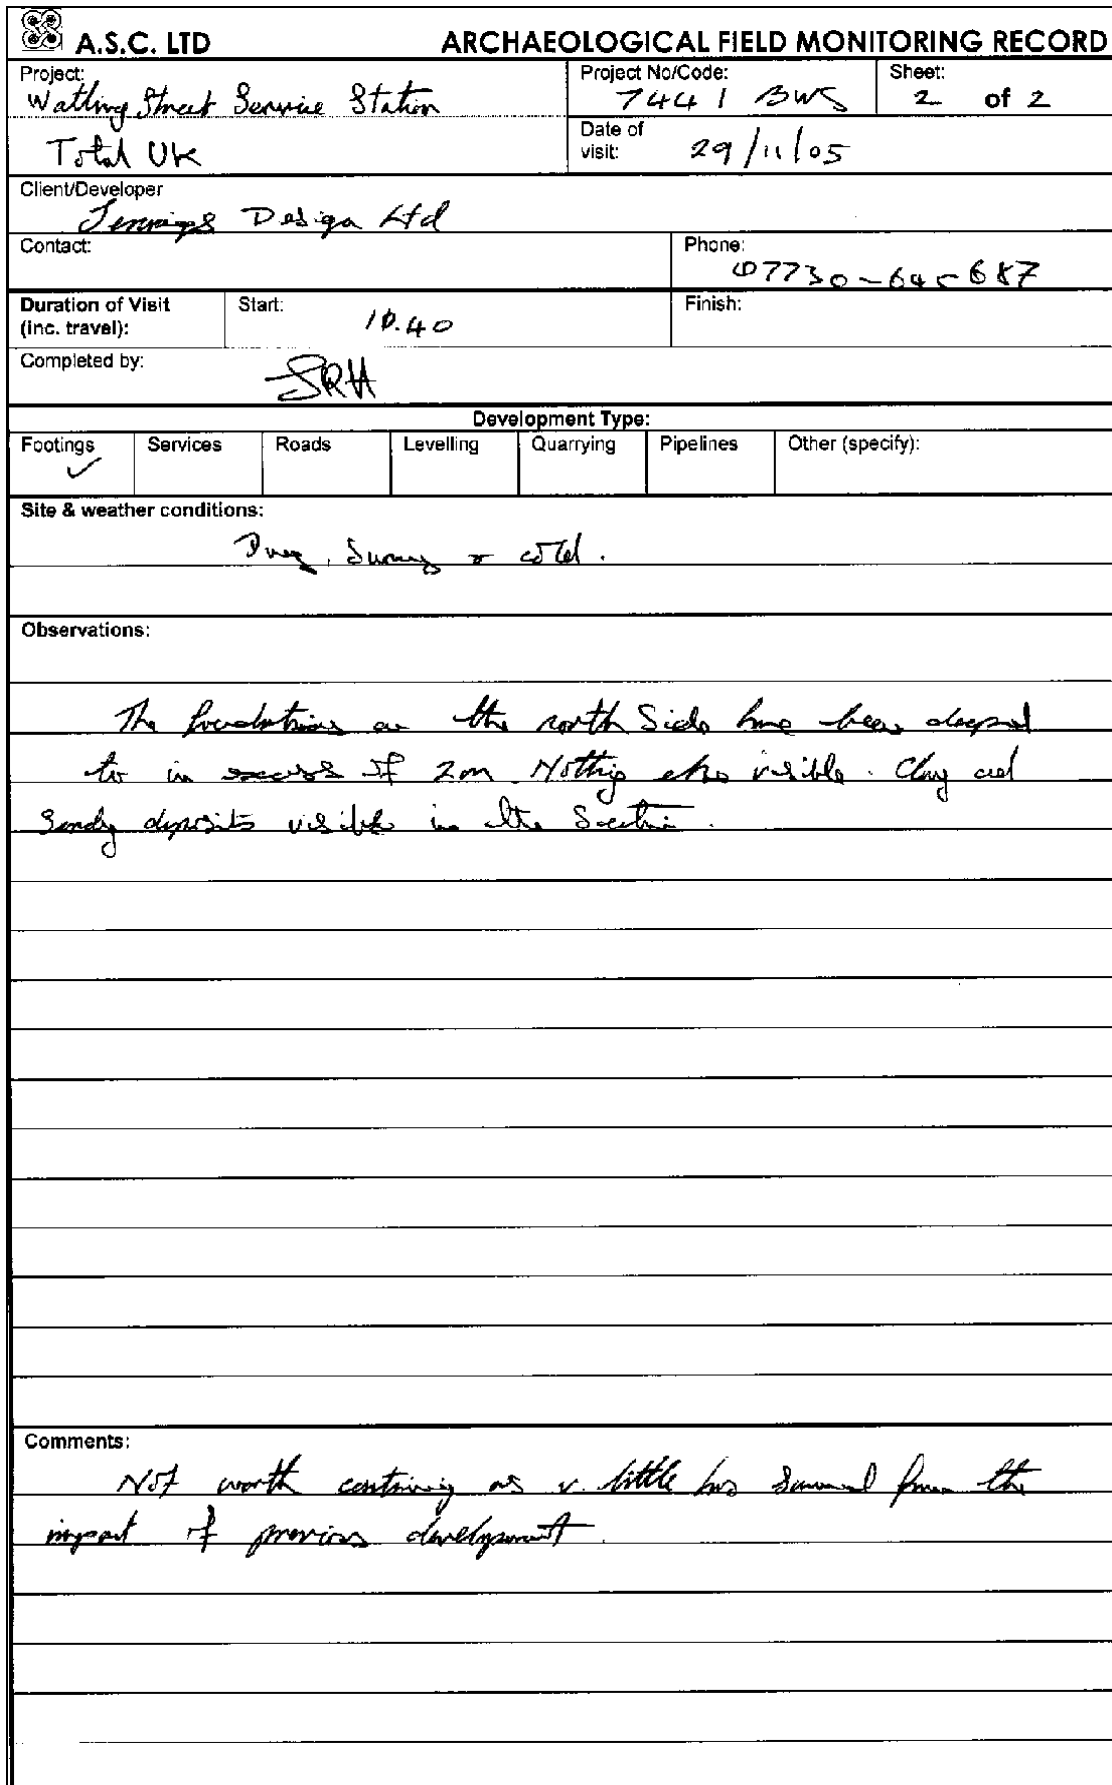 A.S.C. LTD ARCHAEOLOGICAL FIELD MONITORING RECORD
Project: Project No/Code: Sheet:
Watling Street Service Station 7441 BWS 2 of 2
Total UK Date of visit: 29/11/05
Client/Developer
Jennings Design Ltd
Contact: Phone:
07730-645687
Duration of Visit Start: Finish:
(inc. travel): 10.40
Completed by:
Development Type:
Footings Services Roads Levelling Quarrying Pipelines Other (specify):
✓
Site & weather conditions:
Sunny & cold.
Observations:
The foundations on the north Side have been deepened
to in excess of 2m. Nothing else visible. Clay and
Sandy deposits visible in the Section.
Comments:
Not worth continuing as v. little has survived from the
impact of previous development.